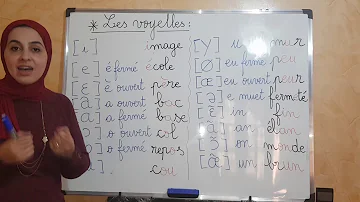 * Les voyelles :
[i] image
[e] é fermé école
[ɛ] è ouvert père
[a] a ouvert bac
[ɑ] a fermé base
[ɔ] o ouvert col
[o] o fermé repos
cou
[y] u mur
[ø] eu fermé peu
[œ] eu ouvert peur
[ə] e muet fermeté
[ɛ̃] in fin
[ɑ̃] an élan
[ɔ̃] on monde
[œ̃] un brun